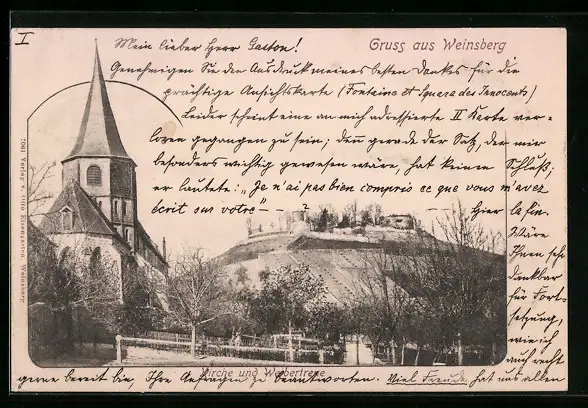 I
Mein lieber Herr Gaston!
Gruss aus Weinsberg
Genehmigen Sie den Ausdruck meines besten Dankes für die
prächtige Ansichtskarte (Fontaine et Square des Innocents)
Leider scheint eine an mich adressierte II Karte ver-
loren gegangen zu sein; denn gerade der Satz, der mir
besonders wichtig gewesen wäre, hat keinen Schluß;
er lautete: „Je n'ai pas bien compris ce que vous m'avez
écrit sur votre" — ?
Hier la fin.
Wäre
Ihnen sehr
dankbar
für Fort-
setzung,
wie ich
auch recht
gerne bereit bin, Ihre Anfragen zu beantworten. Viel Freude hat uns allen
Kirche und Weibertreue
Verlag v. Eisengarten, Weinsberg